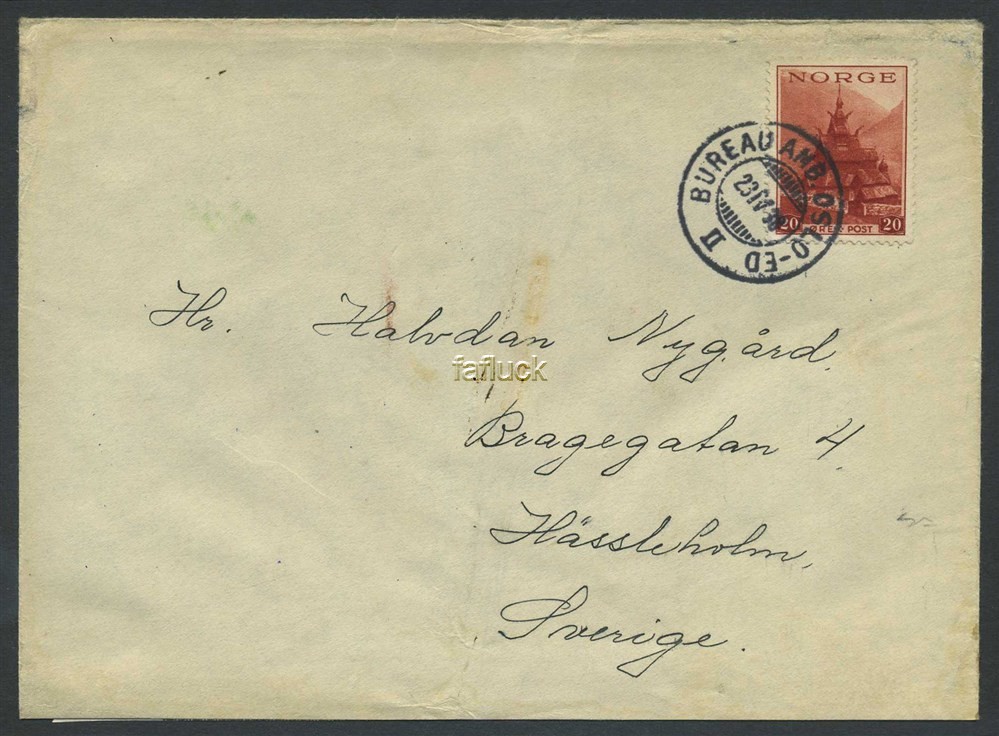 NORGE
20 ØRE POST 20
BUREAU AMB. OSLO-ED II
23 IV 38
Hr. Halvdan Nygård,
fafluck
Bragegatan 4,
Hässleholm,
Sverige.